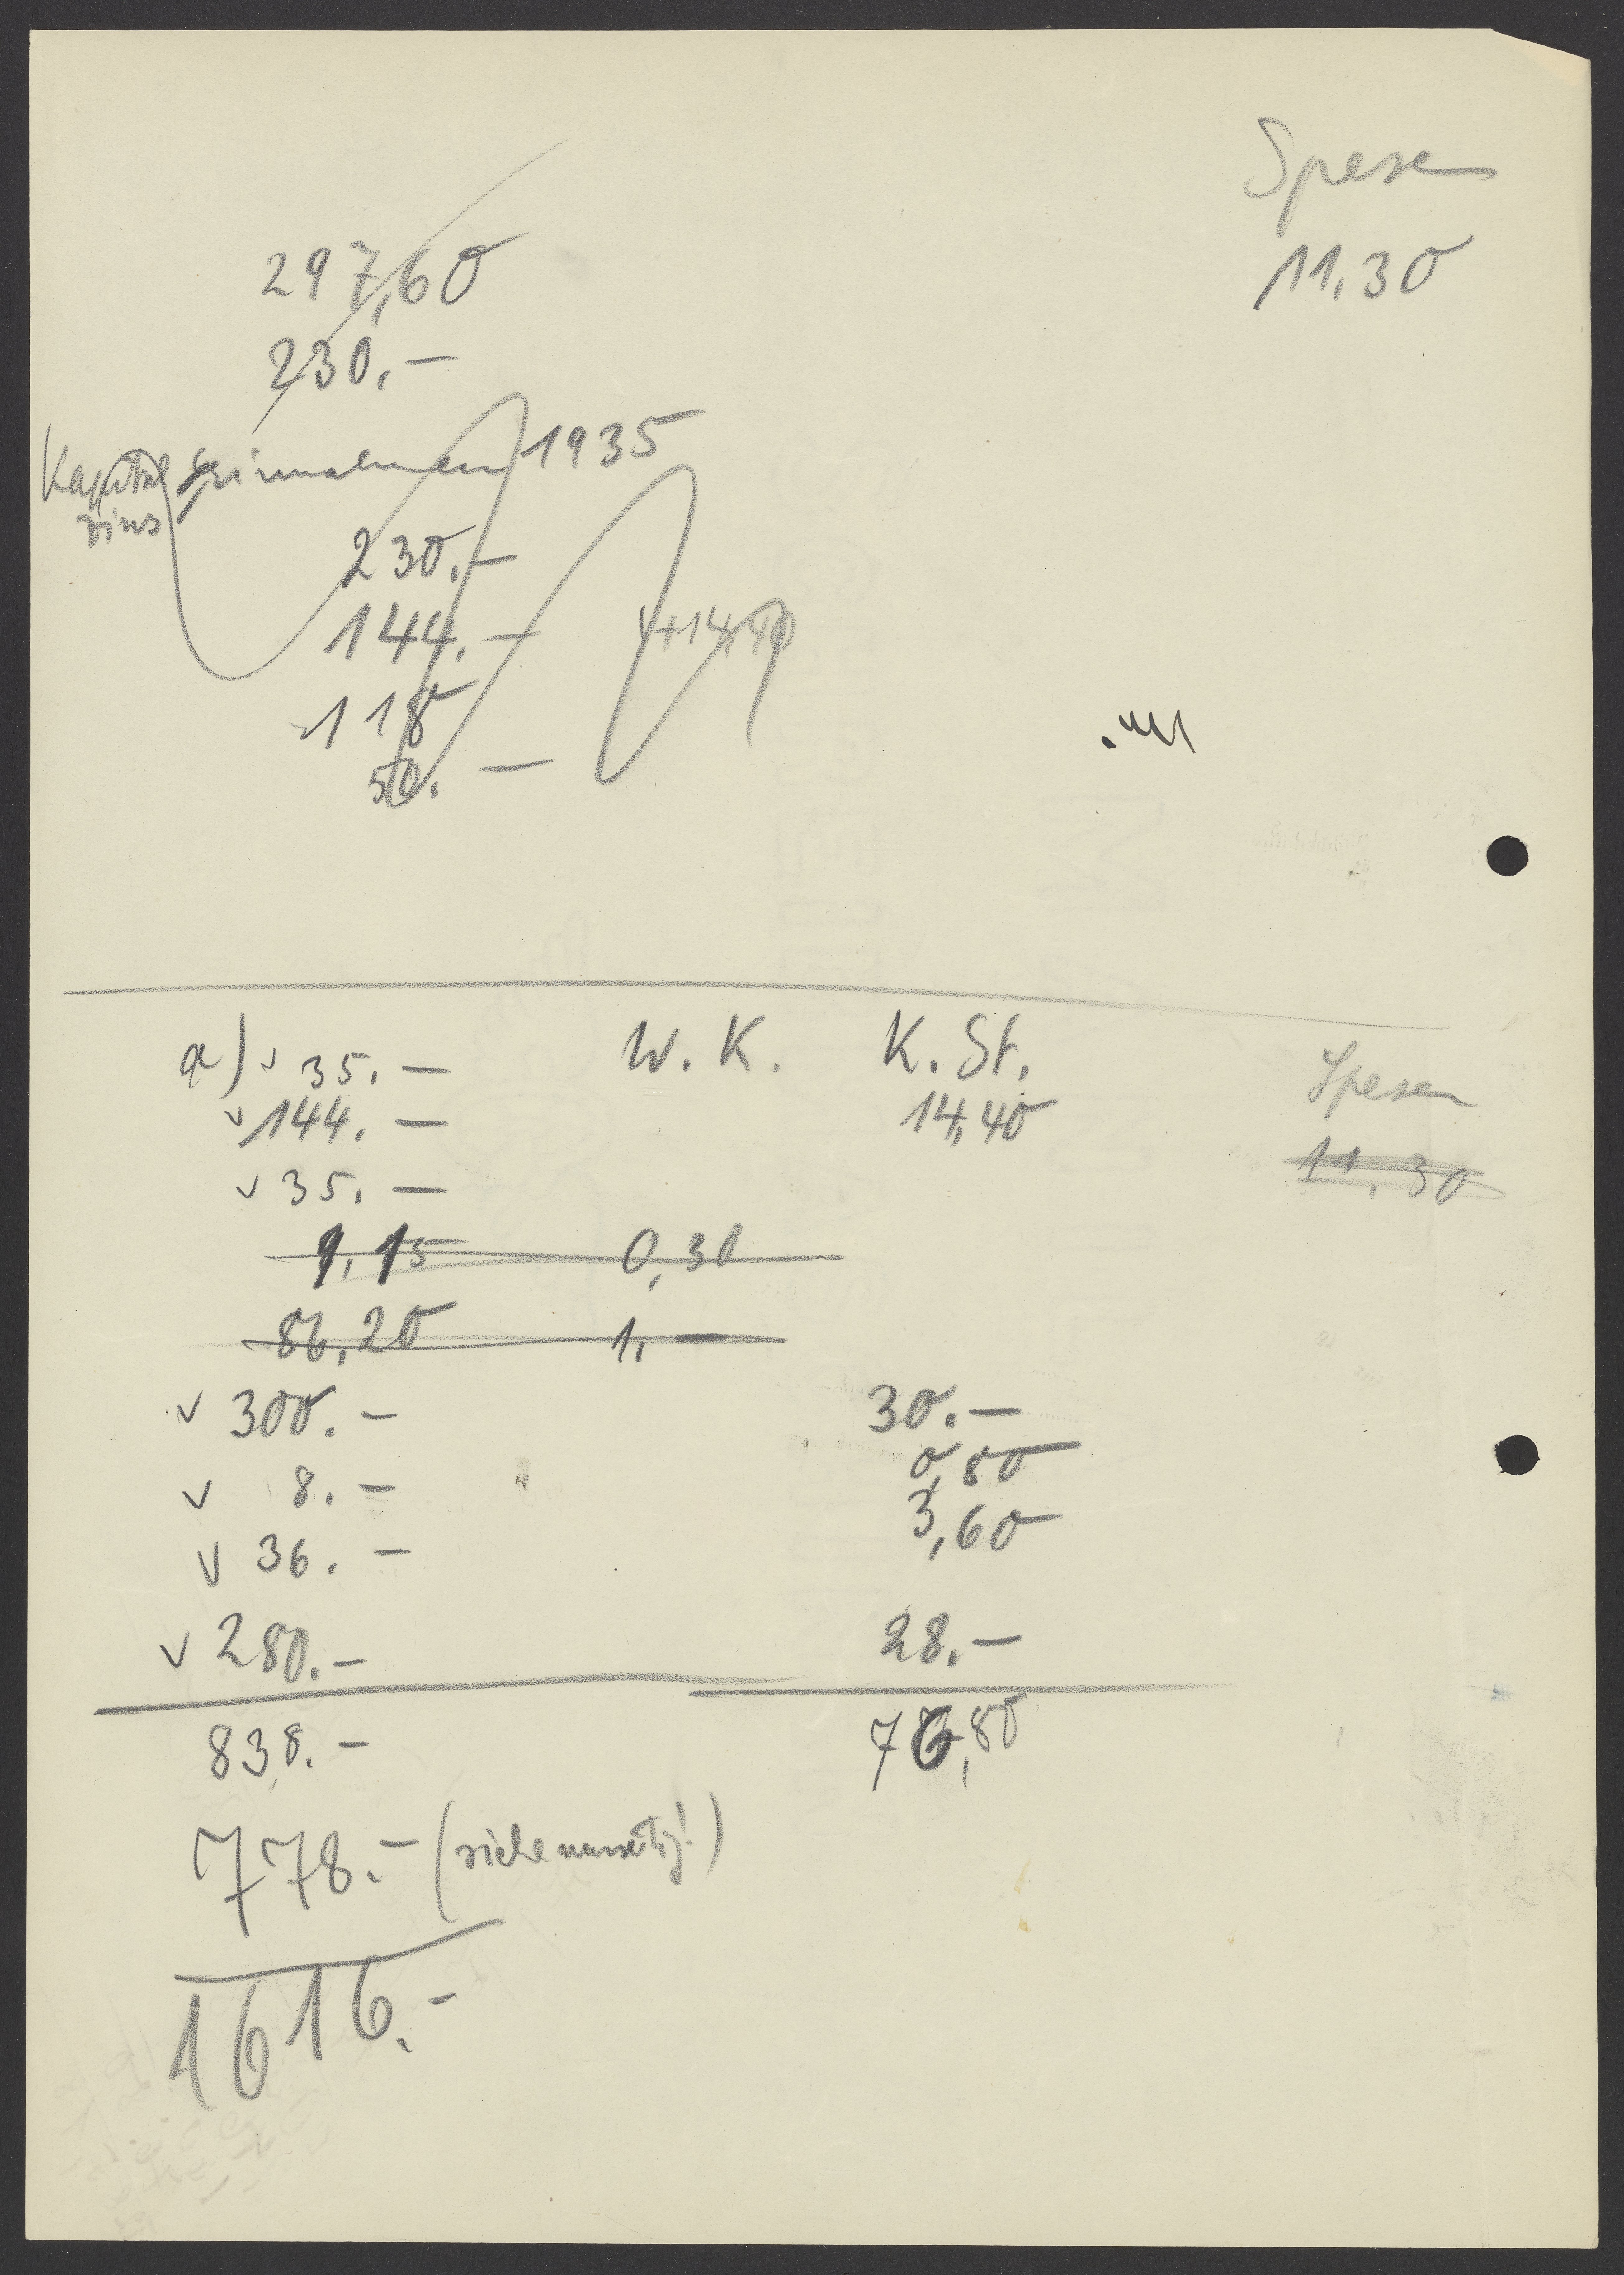 Spesen
11,30
297,60
230.—
Kapital einnahmen 1935
zins
230.—
144.— + 14,40
118
50.—
a) v 35.— W. K. K. St. Spesen
v 144.— 14,40 11,30
v 35.—
1,15 0,30
86,20 1,—
v 300.— 30.—
v 8.— 0,80
v 36.— 3,60
v 280.— 28.—
838.— 76,80
778.— (siehe umseitig!)
1616.—